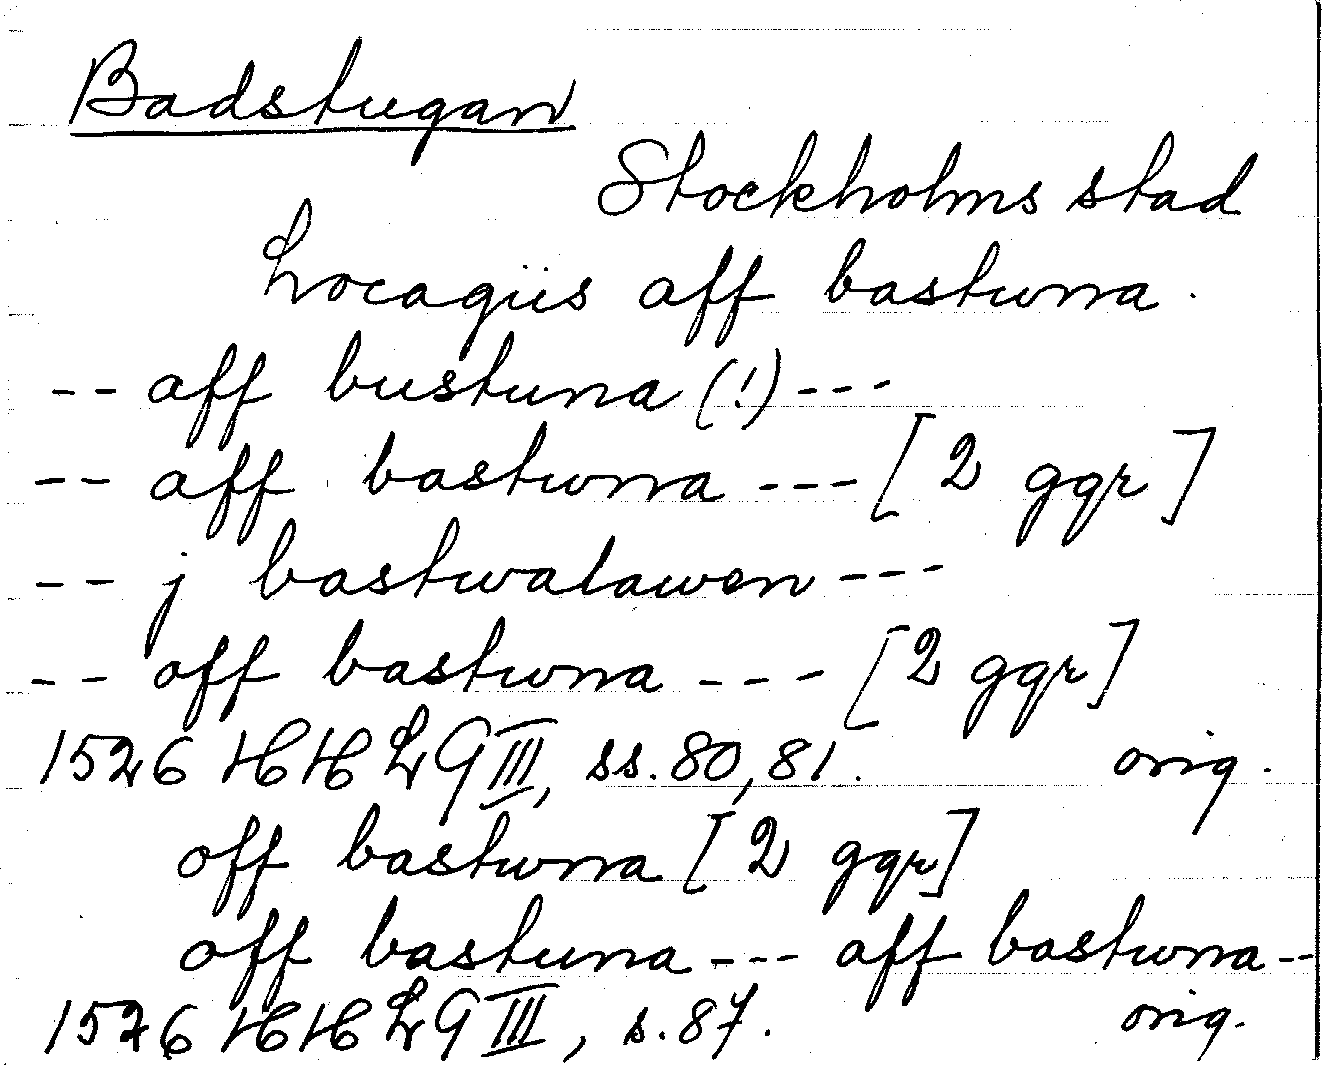 Badstugan
Stockholms stad
Locagüs aff bastwna.
-- aff bustuna (!) ---
-- aff bastwna --- [2 ggr]
-- j bastwalawen ---
-- off bastwna --- [2 ggr]
1526 HH LG III, ss. 80, 81. orig.
off bastwna [2 ggr]
off bastuna --- aff bastwna --
1526 HH LG III, s. 87. orig.